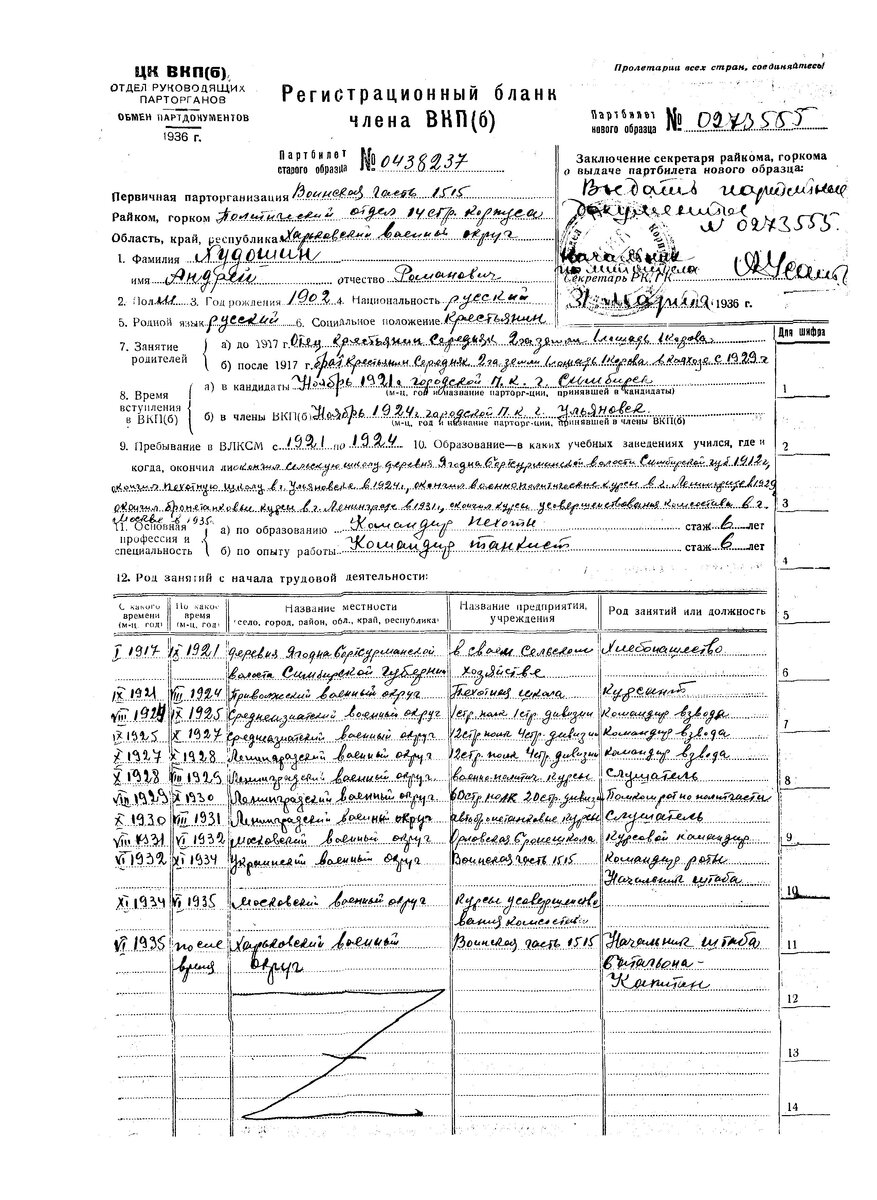 ЦК ВКП(б)
ОТДЕЛ РУКОВОДЯЩИХ
ПАРТОРГАНОВ
ОБМЕН ПАРТДОКУМЕНТОВ
1936 г.
Пролетарии всех стран, соединяйтесь!
Регистрационный бланк
члена ВКП(б)
Партбилет
старого образца № 0438237
Партбилет
нового образца № 0273555
Заключение секретаря райкома, горкома
о выдаче партбилета нового образца:
Выдать партийные
документы
№ 0273555.
Начальник
политотдела
Секретарь РК, ГК
31 марта 1936 г.
Первичная парторганизация Воинская часть 1515
Райком, горком Политический отдел 14 стр. Корпуса
Область, край, республика Харьковский военный округ
1. Фамилия Худошин
имя Андрей отчество Романович
2. Пол м 3. Год рождения 1902 4. Национальность русский
5. Родной язык русский 6. Социальное положение Крестьянин
7. Занятие
родителей
а) до 1917 г. Отец Крестьянин Середняк 2 га земли 1 лошадь 1 корова
б) после 1917 г. брат Крестьянин Середняк 2 га земли 1 лошадь 1 корова в колхозе с 1929 г
8. Время
вступления
в ВКП(б)
а) в кандидаты Ноябрь 1921 г. городской П.К. г. Симбирск
(м-ц, год и название парторг-ции, принявшей в кандидаты)
б) в члены ВКП(б) Ноябрь 1924 г. городской П.К. г. Ульяновск
(м-ц, год и название парторг-ции, принявшей в члены ВКП(б)
9. Пребывание в ВЛКСМ с 1921 по 1924 10. Образование—в каких учебных заведениях учился, где и
когда, окончил ли окончил сельскую школу деревня Ягодна Сортсурманской волости Симбирской губ 1912 г,
окончил пехотную школу в г. Ульяновске в 1924 г., окончил военнополитические курсы в г. Ленинграде в 1929
окончил бронетанковые курсы в г. Ленинграде в 1931 г., окончил курсы усовершенствования комсостава в г.
Москве в 1935
11. Основная
профессия и
специальность
а) по образованию Командир пехоты стаж 6 лет
б) по опыту работы Командир танкист стаж 6 лет
12. Род занятий с начала трудовой деятельности:
С какого времени (м-ц, год) По какое время (м-ц, год) Название местности село, город, район, обл., край, республика Название предприятия, учреждения Род занятий или должность
I 1917 IX 1921 деревня Ягодна Сортсурманской в своем Сельском Хлебопашество
волости Симбирской губернии хозяйстве
IX 1921 VIII 1924 Приволжский военный округ Пехотная школа Курсант
VIII 1924 IX 1925 Среднеазиатский военный округ 1 стр. полк 1 стр. дивизии Командир взвода
IX 1925 X 1927 Среднеазиатский военный округ 12 стр. полк 4 стр. дивизии Командир взвода
X 1927 X 1928 Ленинградский военный округ 12 стр. полк 4 стр. дивизии Командир взвода
X 1928 VIII 1929 Ленинградский военный округ. военно политич. Курсы Слушатель
VIII 1929 X 1930 Ленинградский военный округ 60 стр. полк 20 стр. дивизи Помком роты политчасти
X 1930 VIII 1931 Ленинградский военный округ автобронетанковые Курсы Слушатель
VIII 1931 VI 1932 Московский военный округ Орловская Бронешкола Курсовой командир
VI 1932 XI 1934 Украинский военный округ Воинская часть 1515 Командир роты
Начальник штаба
XI 1934 VI 1935 Московский военный округ Курсы усовершенство
вания комсостава
VI 1935 после Харьковский военный Воинская часть 1515 Начальник штаба
время округ батальона-
Капитан
Для шифра
1
2
3
4
5
6
7
8
9
10
11
12
13
14